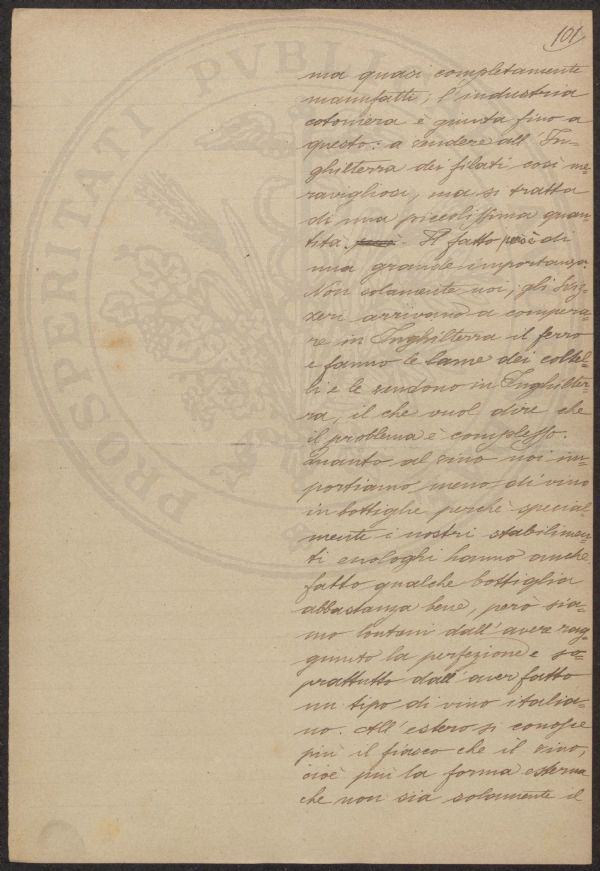 101
ma quasi completamente
manufatti; l'industria
cotoniera è giunta fino a
questo: a vendere all'In-
ghilterra dei filati così me-
ravigliosi, ma si tratta
di una piccolissima quan-
tità. Il fatto però è di
una grande importanza.
Non solamente noi, gli Sviz-
zeri arrivano a compera-
re in Inghilterra il ferro
e fanno le lame dei coltel-
li e le vendono in Inghilter-
ra, il che vuol dire che
il problema è complesso.
Quanto al vino noi im-
portiamo meno di vino
in bottiglie perchè special-
mente i nostri stabilimen-
ti enologhi hanno anche
fatto qualche bottiglia
abbastanza bene, però sia-
mo lontani dall'avere rag-
giunto la perfezione e so-
prattutto dall'aver fatto
un tipo di vino italia-
no. All'estero si conosce
più il fiasco che il vino,
cioè più la forma esterna
che non sia solamente il
PROSPERITATI PVBLI